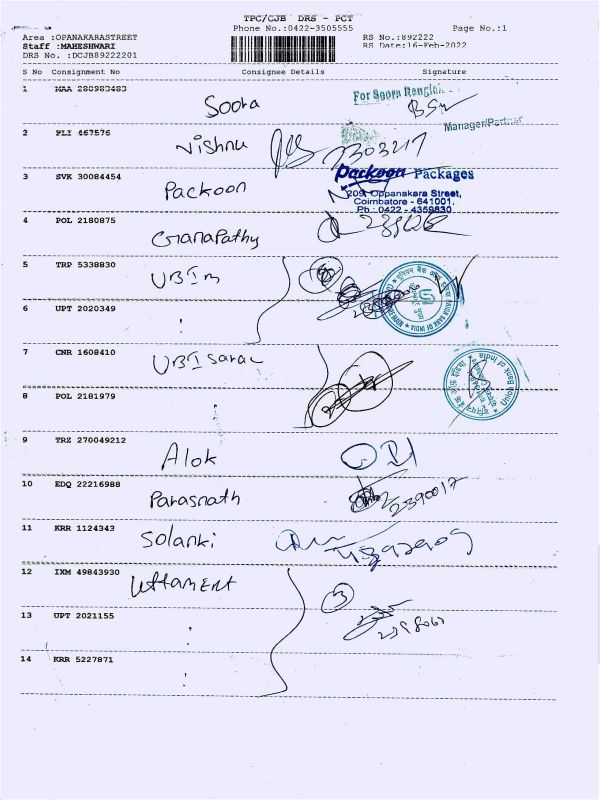 TPC/CJB DRS - PCT
Phone No.:0422-3505555 Page No.:1
Area :OPANAKARASTREET RS No.:892222
Staff :MAHESHWARI RS Date:16-Feb-2022
DRS No. :DCJB89222201
S No Consignment No Consignee Details Signature
1 MAA 280983483 Soora For Soora
Manager/Partner
2 PLI 467576 Vishnu
3 SVK 30084454 Packoon Packoon Packages
209, Oppanakara Street,
Coimbatore - 641001.
Ph : 0422 - 4359830
4 POL 2180875 Ganapathy
5 TRP 5338830 UBI m
6 UPT 2020349 "
7 CNR 1608410 UBI Sarac Union Bank of India
8 POL 2181979 "
9 TRZ 270049212 Alok
10 EDQ 22216988 Parasnath 2390017
11 KRR 1124343 Solanki
12 IXM 49843930 Uttament 3
13 UPT 2021155 "
14 KRR 5227871 "